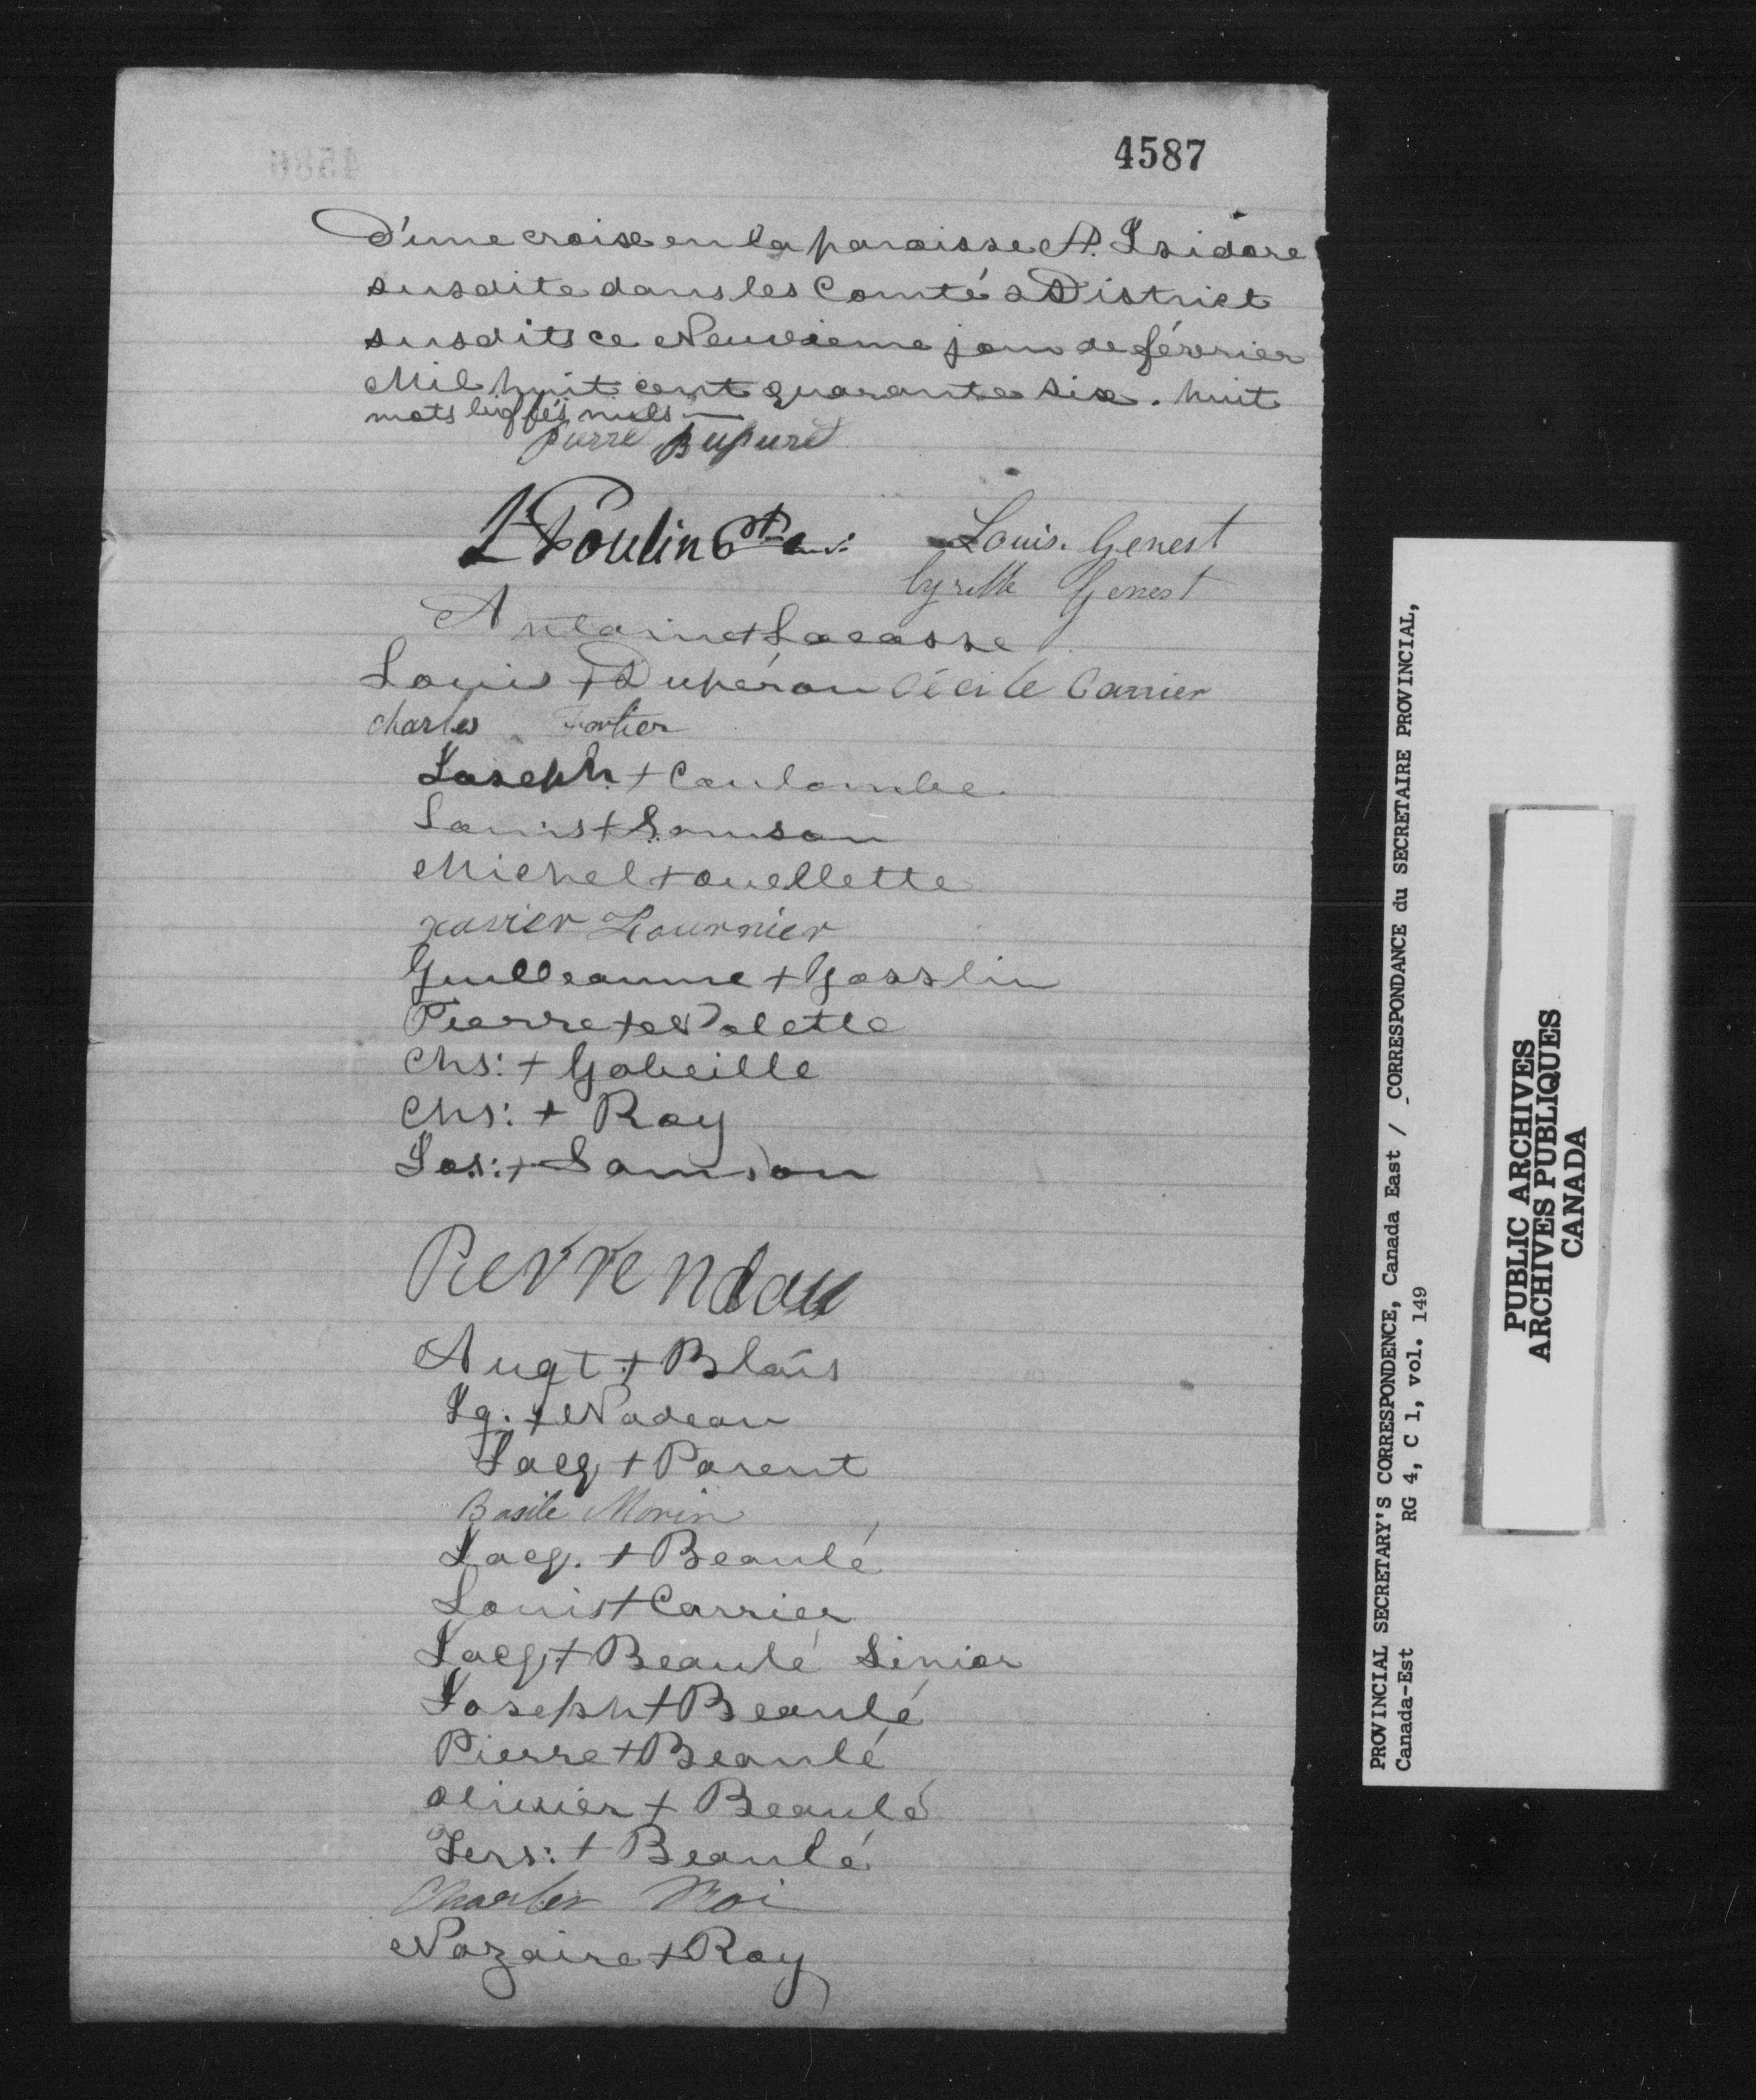 4587
D'une croix en la paroisse St. Isidore
susdite dans les Comté & District
susdits ce Neuvieme jour de février
Mil huit cent quarante six. huit
mots biffés nuls
Pierre Dupuré
Poulin Ptre
Louis. Genest
Genest
Antoine + Lacasse
Louis + Dupéron Cécile Carrier
Charles Fortier
Joseph + Coulombe
Louis + Samson
Michel + ouellette
xavier Fournier
Guilleaume + Gosslin
Pierre + Nolette
Chs: + Gobeille
Chs: + Roy
Jos: + Samson
Pierre ndau
Augt + Blais
Ig. + Nadeau
Jacq + Parent
Basile Morin
Jacq. + Beaulé
Louis + Carrier
Jacq + Beaulé Sinior
Joseph + Beaulé
Pierre + Beaulé
olivier + Beaulé
Fers: + Beaulé
Charles Roi
Nazaire + Roy
PROVINCIAL SECRETARY'S CORRESPONDENCE, Canada East / CORRESPONDANCE du SECRETAIRE PROVINCIAL,
Canada-Est RG 4, C 1, vol. 149
PUBLIC ARCHIVES
ARCHIVES PUBLIQUES
CANADA